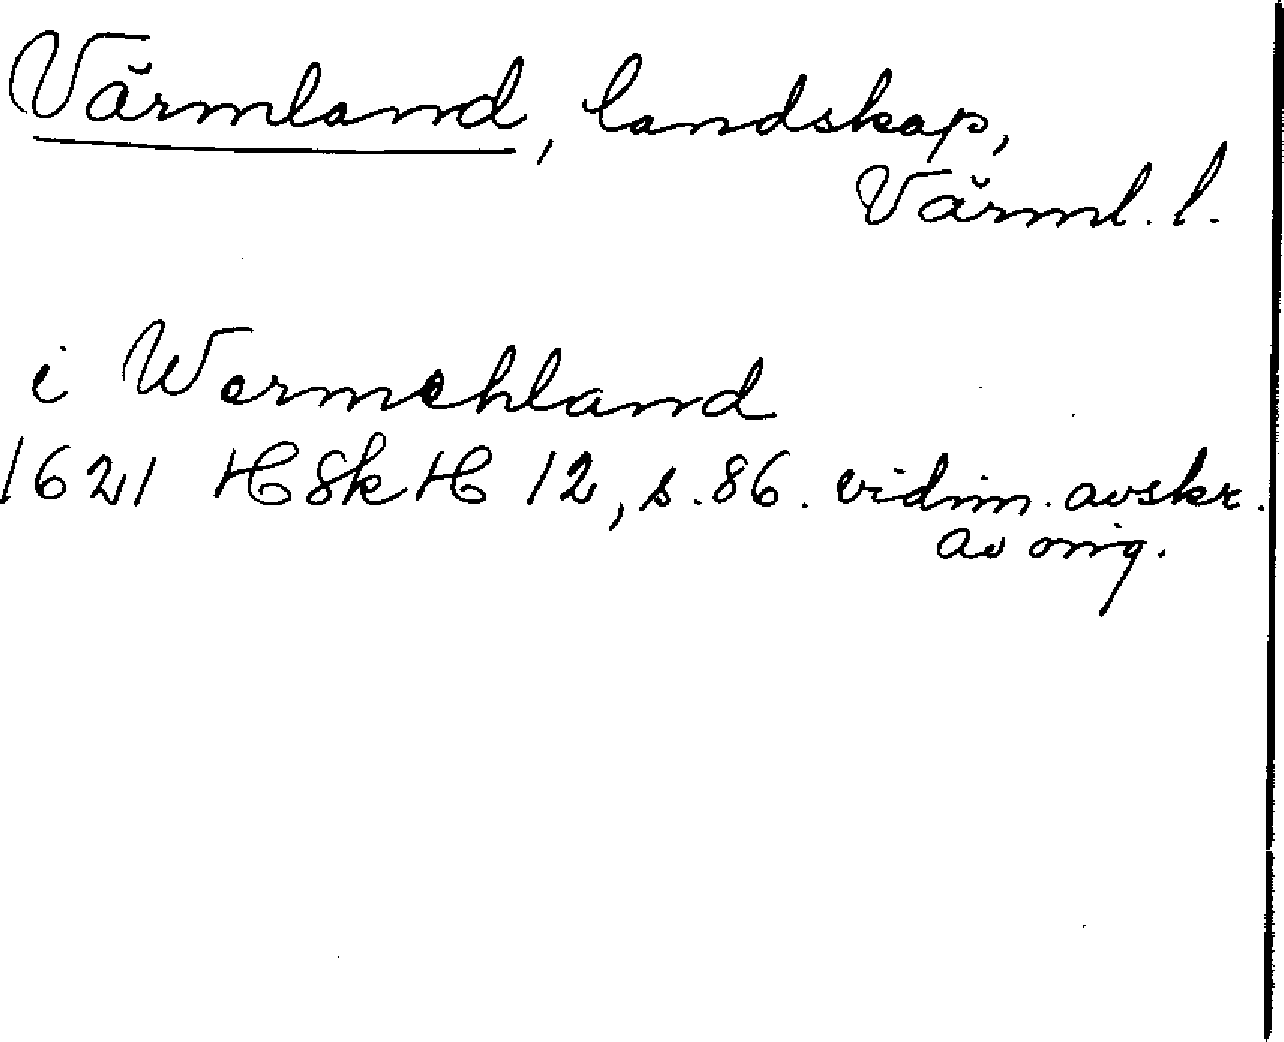 Värmland, landskap,
Värml. l.
i Wermehland
1621 HSkH 12, s. 86. vidim. avskr.
av orig.